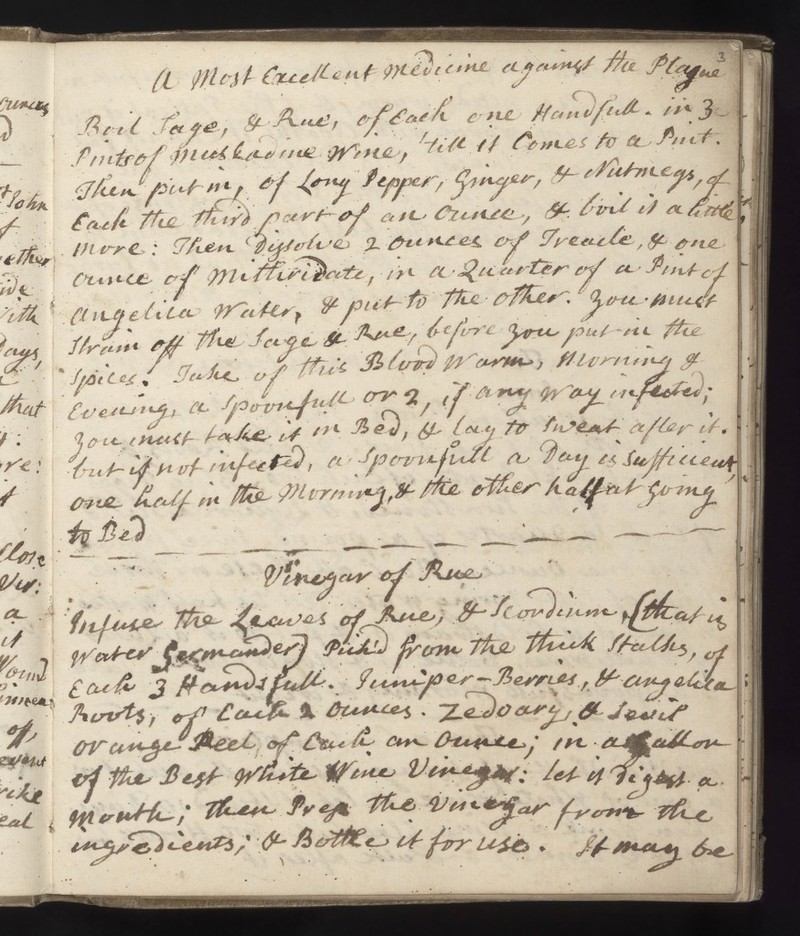 3
A Most Excellent Medicine against the Plague
Boil Sage, & Rue, of Each one Handfull. in 3
Pints of Muskadine Wine, 'till it Comes to a Pint.
Then put in, of Long Pepper, Ginger, & Nutmegs, of
Each the third part of an Ounce, & boil it a little
more: Then Dissolve 2 ounces of Treacle, & one
ounce of Mithridate, in a Quarter of a Pint of
Angelica Water, & put to the other. You must
Strain off the Sage & Rue, before you put in the
Spices. Take of this Blood Warm, Morning &
Evening, a Spoonfull or 2, if any way infected;
You must take it in Bed, & lay to Sweat after it.
but if not infected, a Spoonfull a Day is Sufficient,
one half in the Morning, & the other half at Going
to Bed
Vinegar of Rue
Infuse the Leaves of Rue, & Scordium, (that is
Water Germander) Pick'd from the thick Stalks, of
Each 3 Handsfull. Juniper-Berries, & Angelica
Roots, of Each 2 Ounces. Zedoary, & Sevil
orange Peel, of Each an Ounce; in a Gallon
of the Best White Wine Vinegar: let it Digest a
Month; then Press the Vinegar from the
ingredients; & Bottle it for use. It may be
ounces
St John
f
ether
ide
With
Days,
that
re:
it
Close
Ver:
a
it
Wound
off,
event
rike
eal